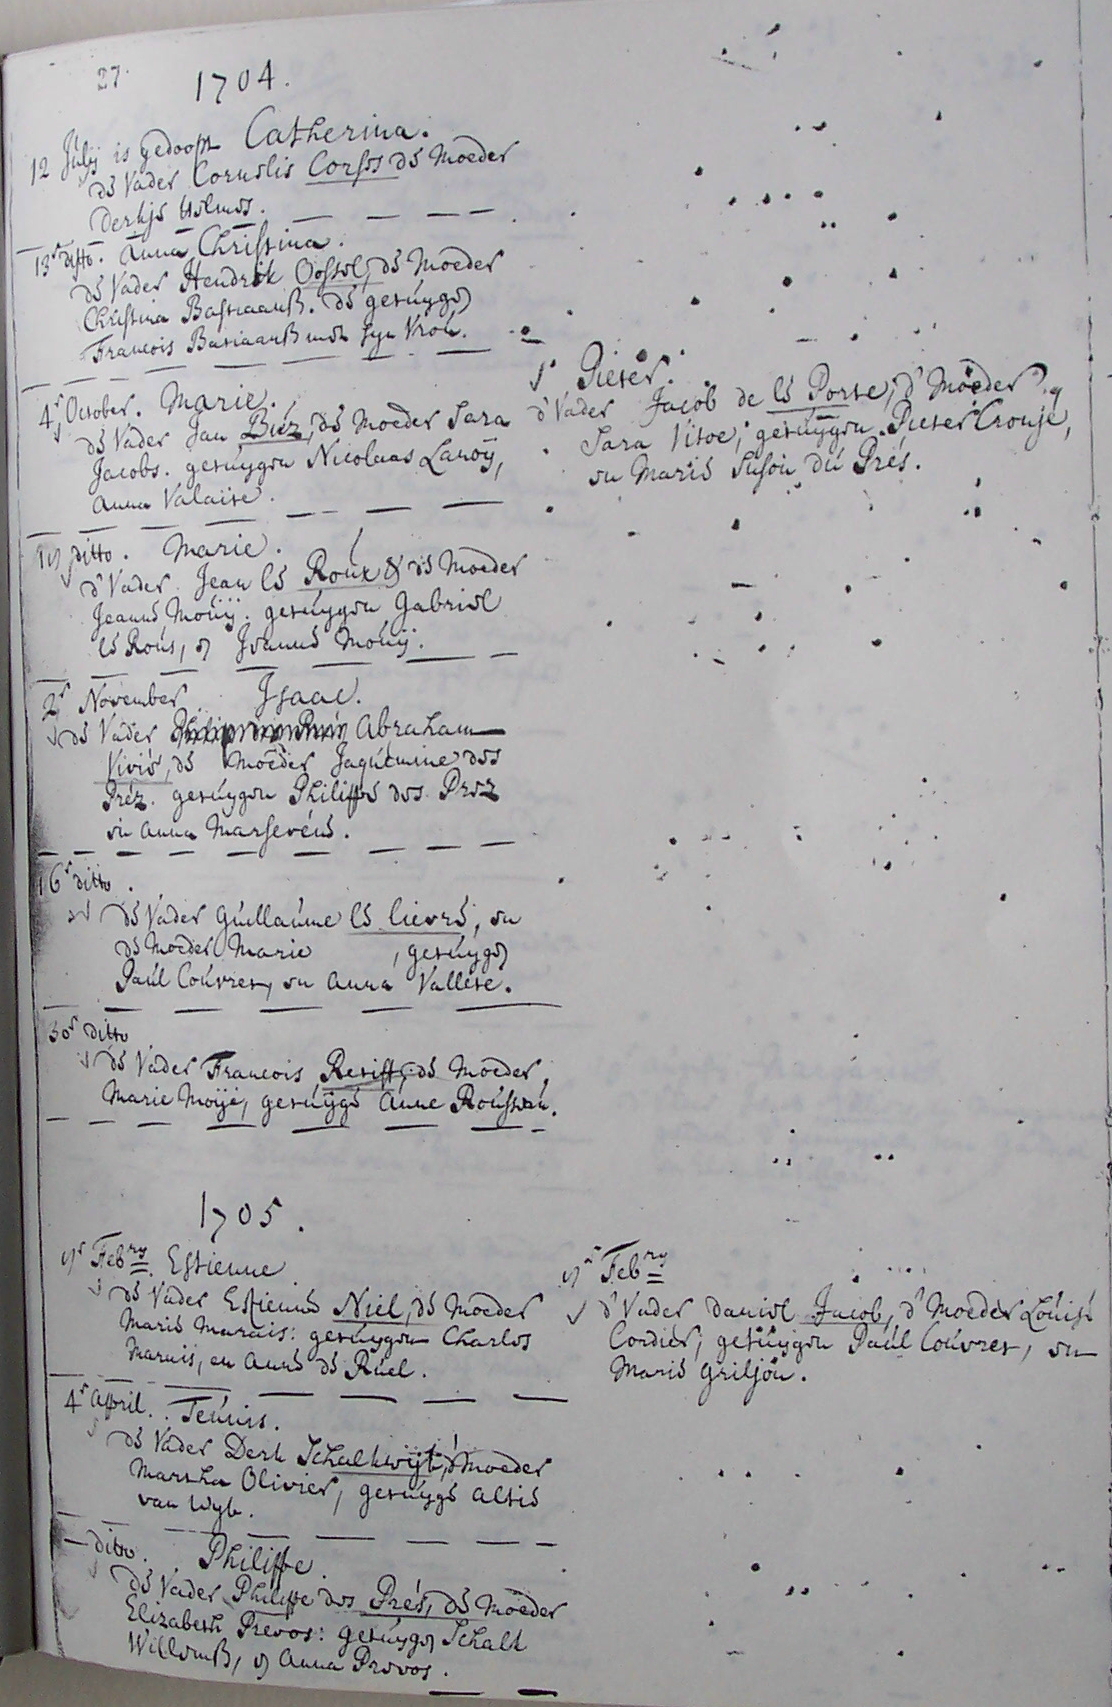 27.
1704.
12 Julij is gedoopt Catherina.
de Vader Cornelis Corsss de Moeder
Derkje
13 ditto. Anna Christina.
de Vader Hendrik Oostel, de Moeder
Christina Bastiaanß. de getuygen
Francois Bastiaanß mdt syn Vrou.
4r October. Marie.
de Vader Jan Buéz, de Moeder Sara
Jacobs. getuygen Nicolaas Lanoÿ,
Anna Valaise.
1r Pieter.
d'Vader Jacob de la Porte, d'Moeder
Sara Vitoe, getuygen Pieter Cronje,
en Marie Suson du Prés.
ditto. Marie.
d'Vader Jean le Roux & de Moeder
Jeanne Mouÿ. getuygen Gabriel
le Rous, en Jeanne Mouÿ.
2r November Isaac.
de Vader Abraham
Vivié, de Moeder Jaquemine des
Préz. getuygen Philippe des Prez
en Anna Marseveéne.
16r ditto.
de Vader Guillaume le lievre, en
de Moeder Marie , getuygen
Paul Couvret, en Anna Vallete.
30r ditto
de Vader Francois Retiff, de Moeder,
Marie Moÿé, getuyge Anne Rousseau.
1705.
Febry. Estienne
de Vader Estienne Niel, de Moeder
Marie Marais: getuygen Charles
Marais, en Anne de Ruel.
Febry
d'Vader Daniel Jacob, d'Moeder Louise
Cordier, getuygen Paul Couvret, en
Marie Griljon.
4r April. Teunis.
de Vader Derk Schalkwijk, d'Moeder
Martha Olivier, getuyge Altie
van Wyk.
— ditto. Philippe.
de Vader Philippe des Prés, de Moeder
Elizabeth Prevos: getuygen Schalk
Willemß, en Anna Prevos.